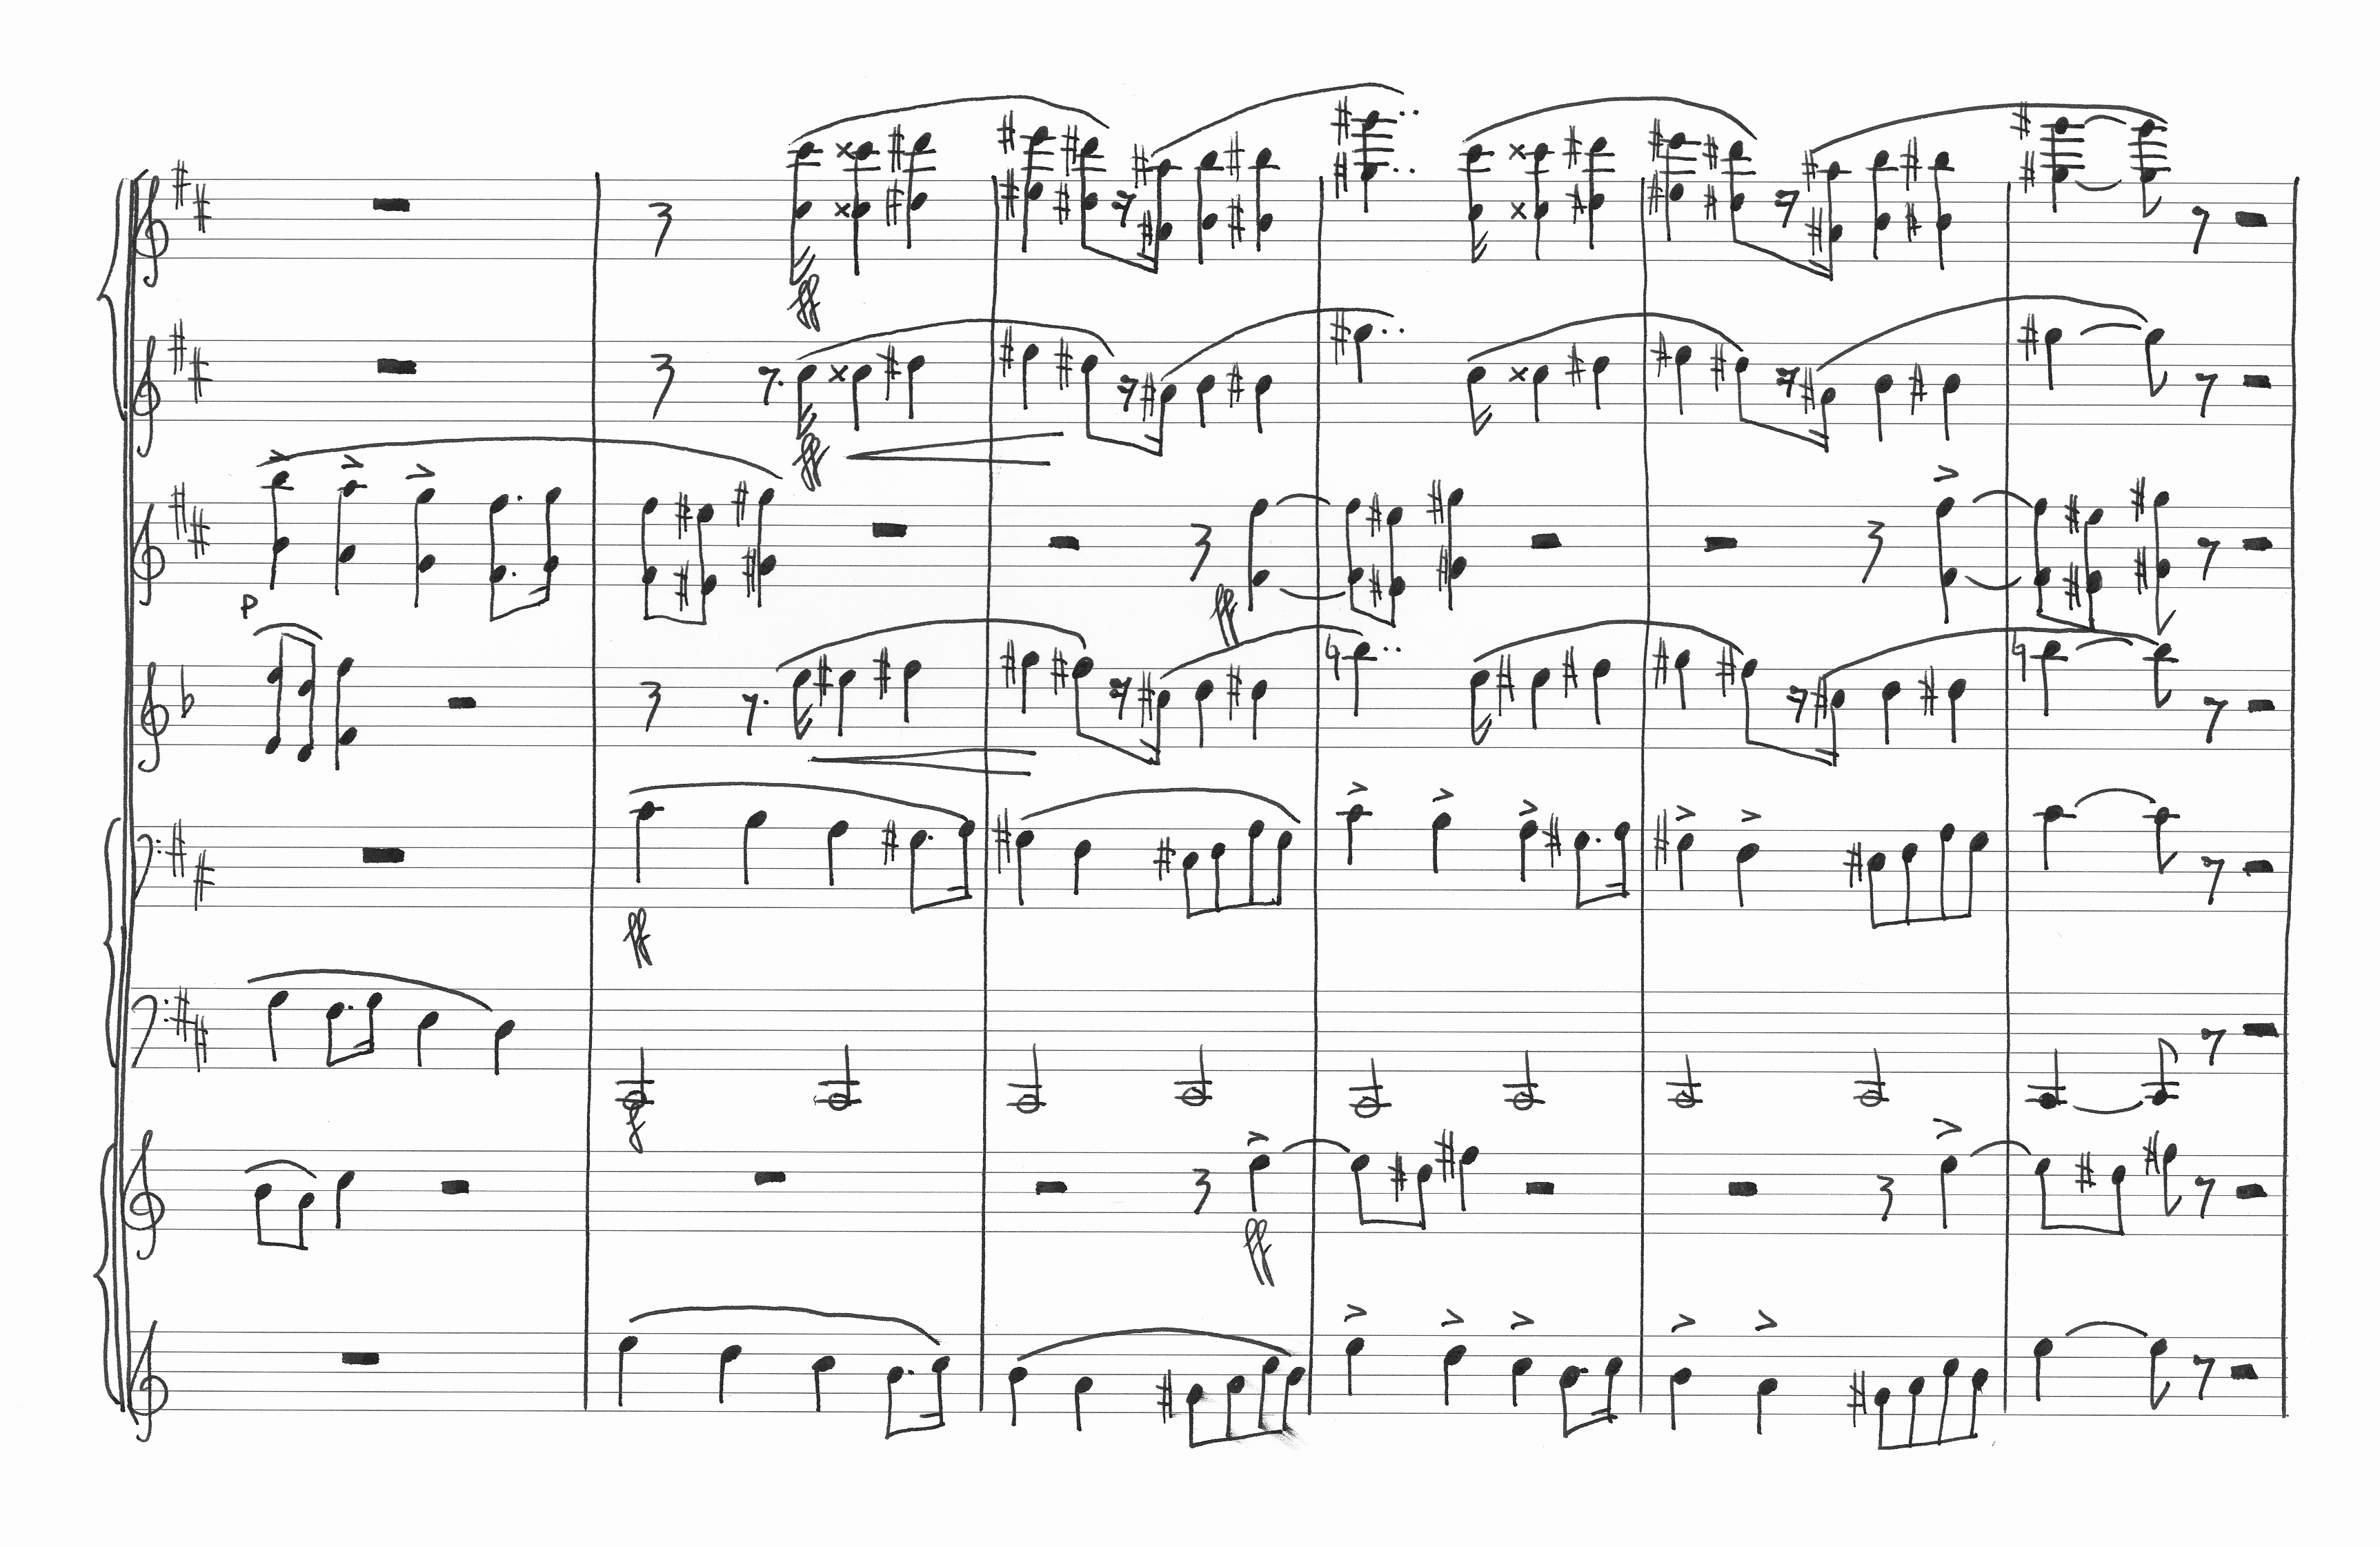 ff
ff
p
ff
ff
f
ff